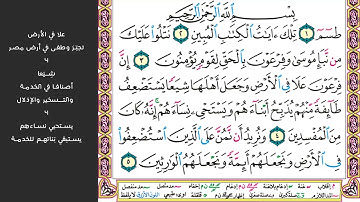 بِسْمِ اللَّهِ الرَّحْمَٰنِ الرَّحِيمِ
طسٓمٓ ١ تِلْكَ ءَايَٰتُ ٱلْكِتَٰبِ ٱلْمُبِينِ ٢ نَتْلُوا۟ عَلَيْكَ
مِن نَّبَإِ مُوسَىٰ وَفِرْعَوْنَ بِٱلْحَقِّ لِقَوْمٍ يُؤْمِنُونَ ٣ إِنَّ
فِرْعَوْنَ عَلَا فِى ٱلْأَرْضِ وَجَعَلَ أَهْلَهَا شِيَعًا يَسْتَضْعِفُ
طَآئِفَةً مِّنْهُمْ يُذَبِّحُ أَبْنَآءَهُمْ وَيَسْتَحْىِۦ نِسَآءَهُمْ إِنَّهُۥ كَانَ
مِنَ ٱلْمُفْسِدِينَ ٤ وَنُرِيدُ أَن نَّمُنَّ عَلَى ٱلَّذِينَ ٱسْتُضْعِفُوا۟
فِى ٱلْأَرْضِ وَنَجْعَلَهُمْ أَئِمَّةً وَنَجْعَلَهُمُ ٱلْوَٰرِثِينَ ٥
علا في الأرض
تجبّر وطغى في أرض مصر
٤
شيعا
أصنافا في الخدمة
والتسخير والإذلال
٤
يستحيي نساءهم
يستبقي بناتهم للخدمة